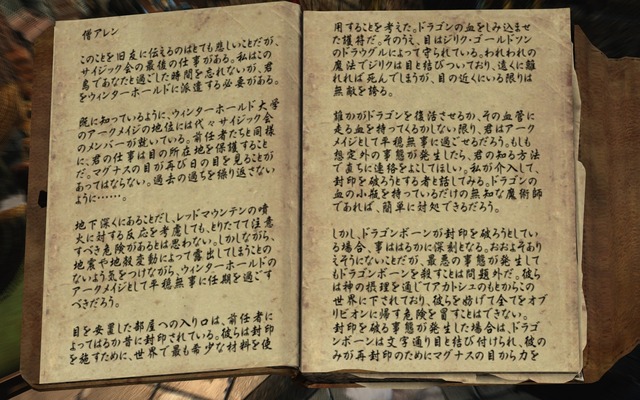 僧アレン
このことを旧友に伝えるのはとても悲しいことだが、
サイジック会の最後の仕事がある。私はこの
島であなたと過ごした時間を忘れないが、君
をウィンターホールドに派遣する必要がある。
既に知っているように、ウィンターホールド大学
のアークメイジの地位には代々サイジック会
のメンバーが就いている。前任者たちと同様
に、君の仕事は目の所在地を保護すること
だ。マグナスの目が再び日の目を見ることが
あってはならない。過去の過ちを繰り返さない
ように……。
地下深くにあることだし、レッドマウンテンの噴
火に対する反応を考慮しても、とりたてて注意
すべき危険があるとは思わない。しかしながら、
地震や地殻変動によって露出してしまうことの
ないよう気をつけながら、ウィンターホールドの
アークメイジとして平穏無事に任期を過ごす
べきだろう。
目を安置した部屋への入り口は、前任者に
よってはるか昔に封印されている。彼らは封印
を施すために、世界で最も希少な材料を使
用することを考えた。ドラゴンの血をしみ込ませ
た護符だ。そのうえ、目はジリク・ゴールドソン
のドラウグルによって守られている。われわれの
魔法でジリクは目と結びついており、遠くに離
れれば死んでしまうが、目の近くにいる限りは
無敵を誇る。
誰かがドラゴンを復活させるか、その血管に
走る血を持ってくるかしない限り、君はアーク
メイジとして平穏無事に過ごせるだろう。もしも
想定外の事態が発生したら、君の知る方法
で直ちに連絡をよこしてほしい。私が介入して、
封印を破ろうとする者と話してみる。ドラゴンの
血の小瓶を持っているだけの無知な魔術師
であれば、簡単に対処できるだろう。
しかし、ドラゴンボーンが封印を破ろうとしてい
る場合、事ははるかに深刻となる。おおよそあり
えそうにないことだが、最悪の事態が発生して
もドラゴンボーンを殺すことは問題外だ。彼ら
は神の摂理を通じてアカトシュのもとからこの
世界に下されており、彼らを妨げて全てをオブ
リビオンに帰す危険を冒すことはできない。
封印を破る事態が発生した場合は、ドラゴ
ンボーンは文字通り目と結び付けられ、彼の
みが再封印のためにマグナスの目から力を